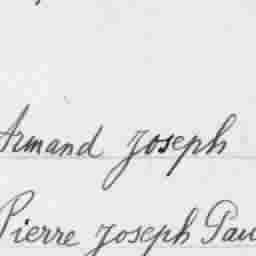 Armand Joseph
Pierre Joseph Pau